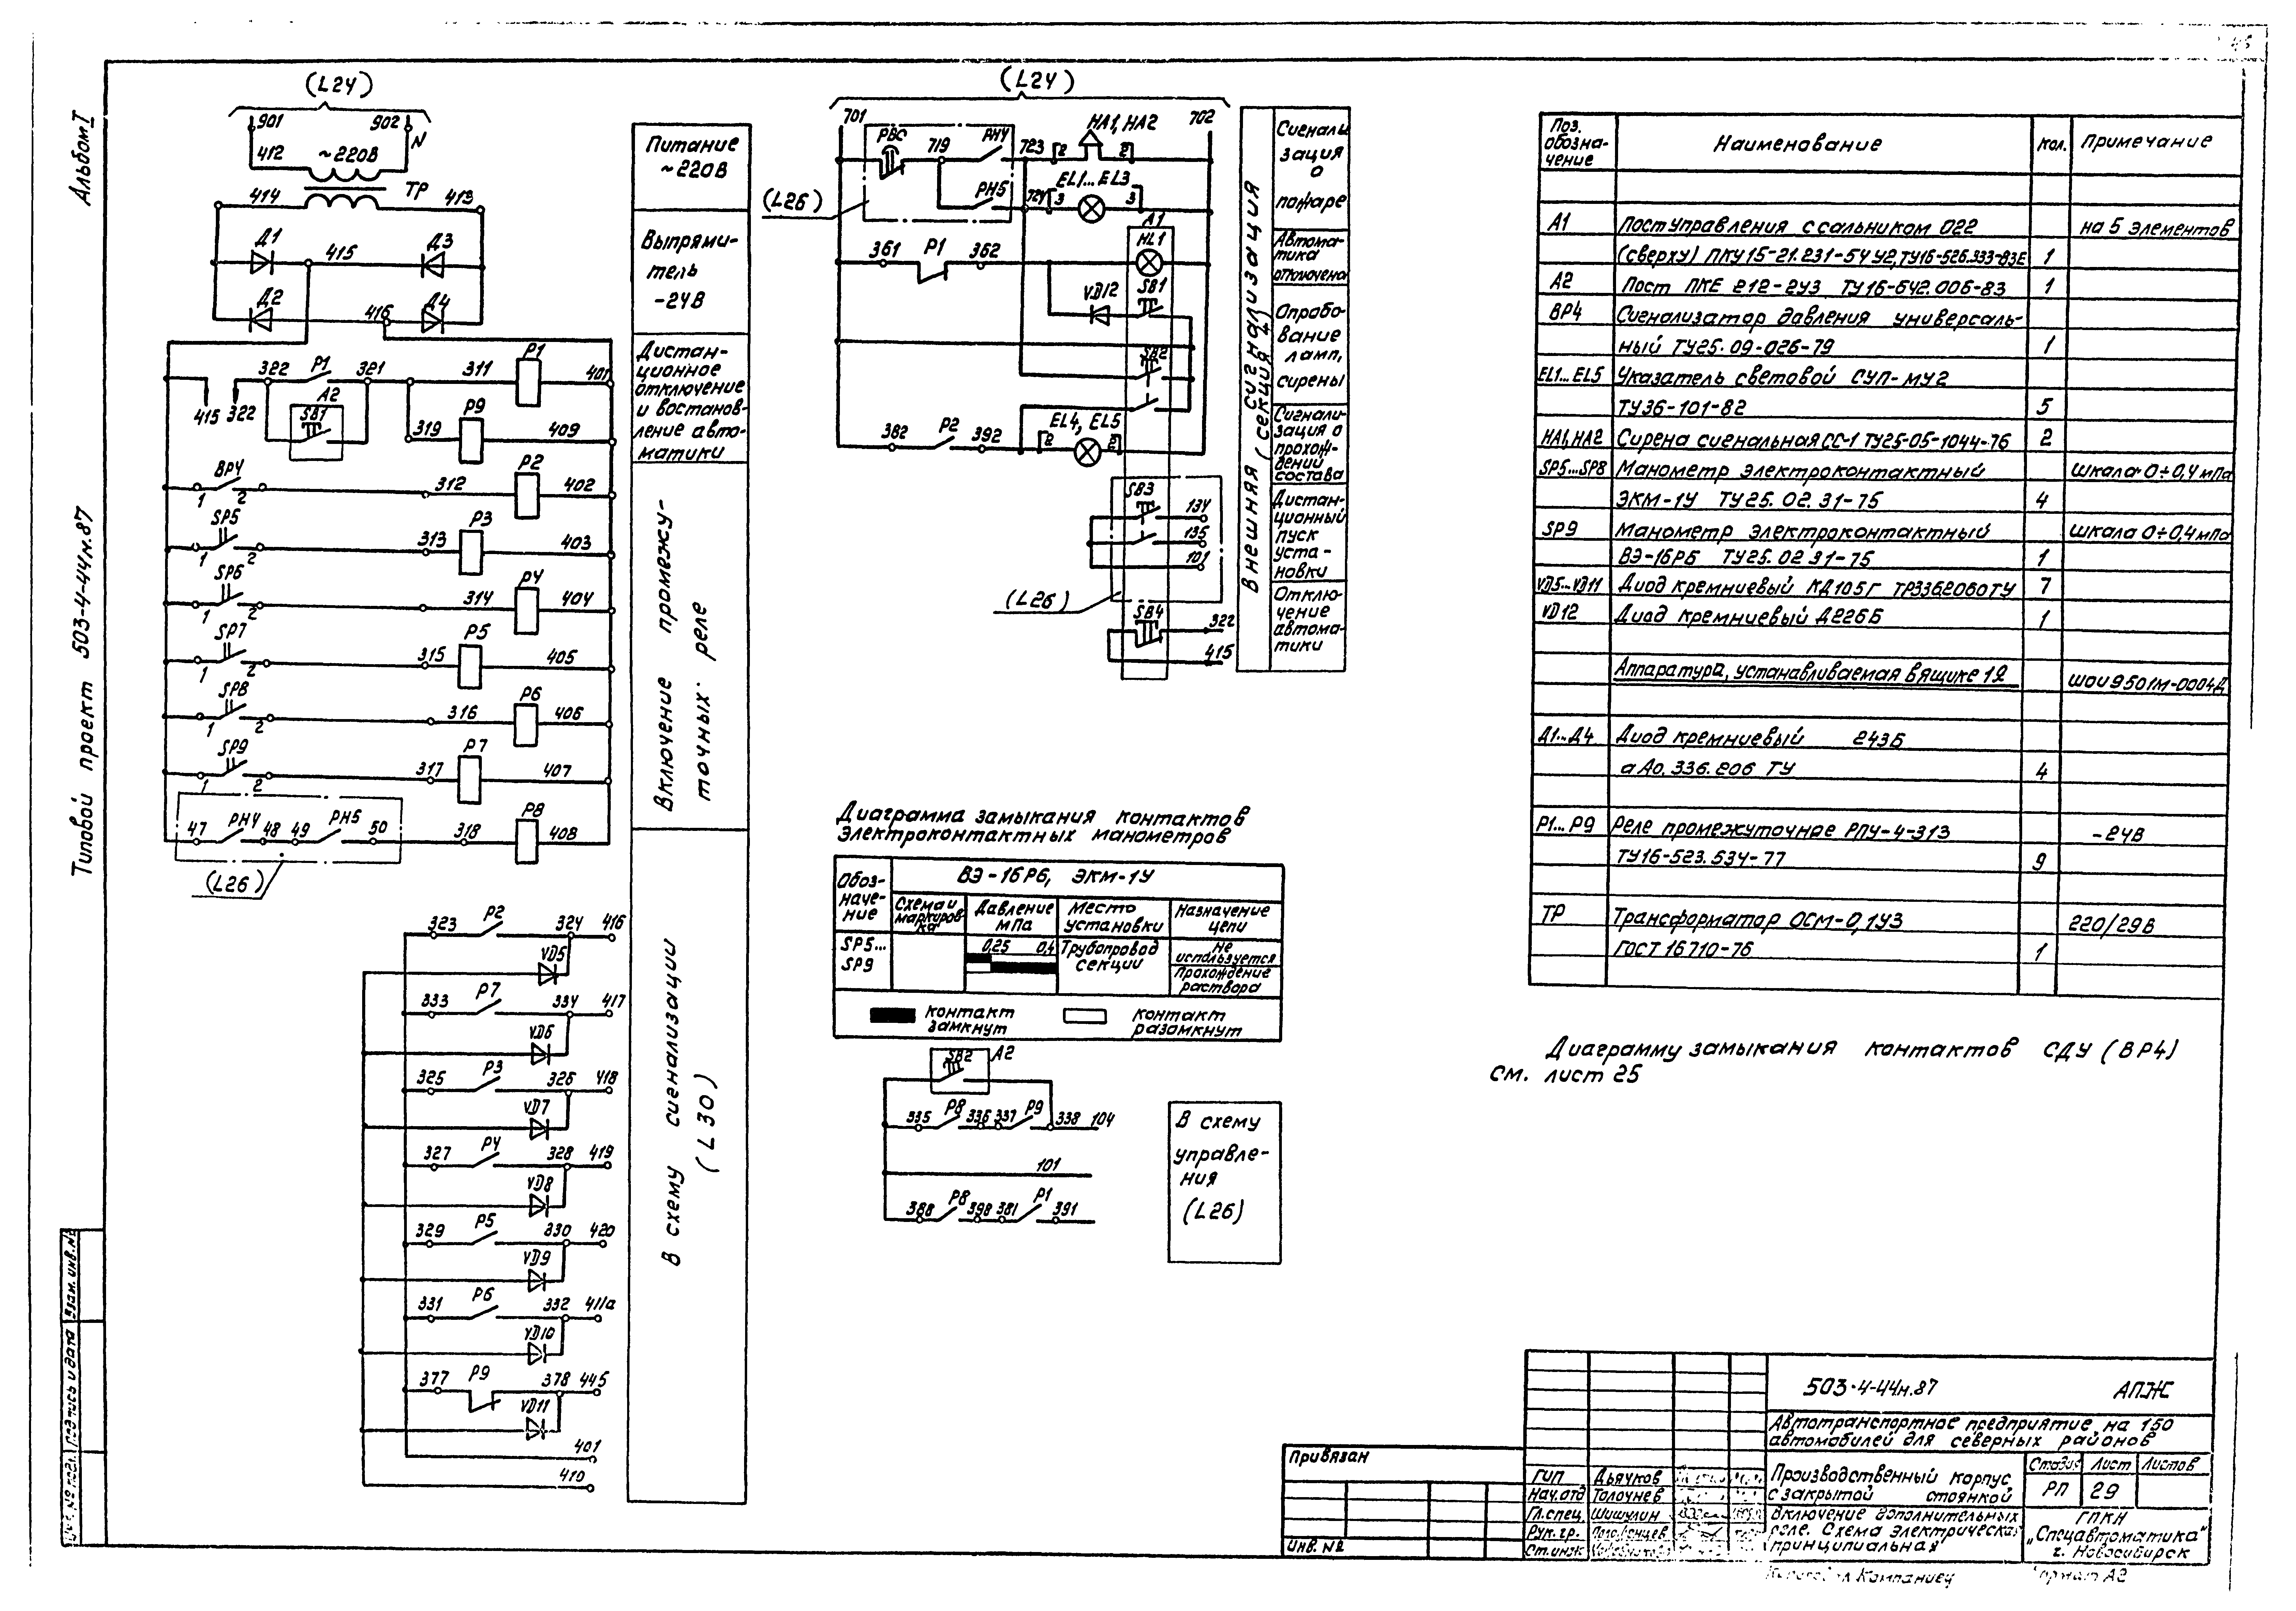 Альбом I
Типовой проект 503-4-44н.87
(L24)
901
902
N
412
~220В
ТР
414
413
Д1
415
Д3
Д2
416
Д4
322
Р1
321
311
Р1
401
415
322
А2
SB1
319
Р9
409
ВР4
1
2
312
Р2
402
SP5
1
2
313
Р3
403
SP6
1
2
314
Р4
404
SP7
1
2
315
Р5
405
SP8
1
2
316
Р6
406
SP9
1
2
317
Р7
407
47
РН4
48
49
РН5
50
318
Р8
408
(L26)
323
Р2
324
416
VD5
333
Р7
334
417
VD6
325
Р3
326
418
VD7
327
Р4
328
419
VD8
329
Р5
330
420
VD9
331
Р6
332
411а
VD10
377
Р9
378
445
VD11
401
410
Питание
~220В
Выпрями-
тель
-24В
Дистан-
ционное
отключение
и востанов-
ление авто-
матики
Включение промежу-
точных реле
В схему сигнализации
(L30)
(L24)
701
702
РВС
719
РН4
723
2
НА1, НА2
2
(L26)
РН5
724
3
EL1...EL3
3
А1
361
Р1
362
HL1
VD12
SB1
SB2
382
Р2
392
2
EL4, EL5
2
SB3
134
135
101
(L26)
SB4
322
415
Внешняя сигнализация
(секция 4)
Сигнали
зация
о
пожаре
Автома-
тика
отключена
Опробо-
вание
ламп,
сирены
Сигнали-
зация о
прохож-
дений
состава
Дистан-
ционный
пуск
уста-
новки
Отклю-
чение
автома-
тики
Диаграмма замыкания контактов
электроконтактных манометров
Обоз-
наче-
ние
ВЭ-16Рб, ЭКМ-1У
Схема и
маркиров
ка
Давление
МПа
Место
установки
Назначение
цепи
SP5...
SP9
0,25 0,4
Трубопровод
секции
не
используется
Прохождение
раствора
контакт
замкнут
контакт
разомкнут
SB2
А2
335
Р8
336
337
Р9
338
104
101
388
Р8
398
381
Р1
391
В схему
управле-
ния
(L26)
Поз.
обозна-
чение
Наименование
Кол.
Примечание
А1 Пост управления с сальником 022 на 5 элементов
(сверху) ПКУ15-21.231-54У2, ТУ16-526.333-83Е 1
А2 Пост ПКЕ 212-2У3 ТУ16-642.006-83 1
ВР4 Сигнализатор давления универсаль-
ный ТУ25.09-026-79 1
EL1...EL5 Указатель световой СУП-МУ2
ТУ36-101-82 5
НА1,НА2 Сирена сигнальная СС-1 ТУ25-05-1044-76 2
SP5...SP8 Манометр электроконтактный шкала 0÷0,4мПа
ЭКМ-1У ТУ25.02.31-75 4
SP9 Манометр электроконтактный шкала 0÷0,4мПа
ВЭ-16РБ ТУ25.02 31-75 1
VD5...VD11 Диод кремниевый КД105Г ТР3362060ТУ 7
VD12 Диод кремниевый Д226Б 1
Аппаратура, устанавливаемая в ящике 1Я ШОУ9501М-0004Д
Д1...Д4 Диод кремниевый 243Б
аА0.336.206 ТУ 4
Р1...Р9 Реле промежуточное РПУ-4-313 -24В
ТУ16-523.534-77 9
ТР Трансформатор ОСМ-0,1У3 220/29В
ГОСТ 16710-76 1
Диаграмму замыкания контактов СДУ (ВР4)
см. лист 25
503-4-44н.87 АПЖ
Автотранспортное предприятие на 150
автомобилей для северных районов
Производственный корпус
с закрытой стоянкой
Стадия Лист Листов
РП 29
Включение дополнительных
реле. Схема электрическая
принципиальная
ГПКИ
„Спецавтоматика"
г. Новосибирск
Привязан
Инв. №
ГИП Дьячков
Нач.отд Толочнев
Гл.спец. Шишулин
Рук. гр.
Ст.инж
Формат А2
Подпись и дата
Взам. инв.№